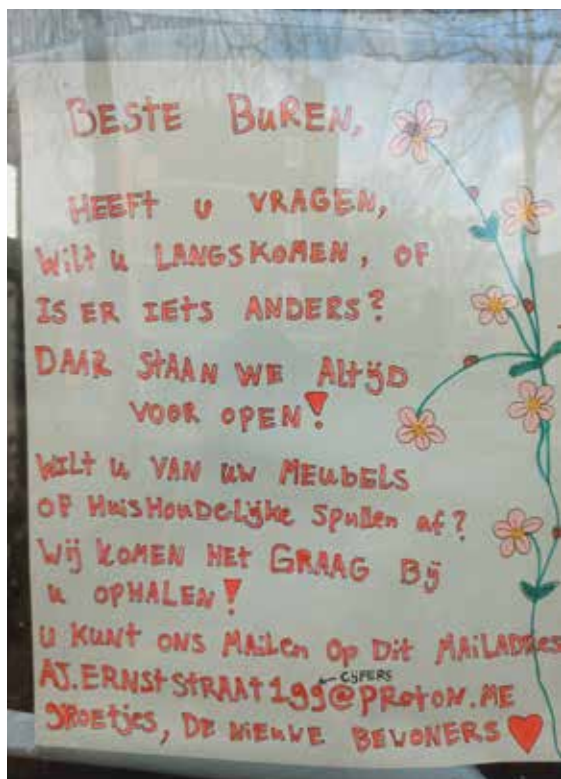 BESTE BUREN,
HEEFT U VRAGEN,
WILT U LANGSKOMEN, OF
IS ER IETS ANDERS?
DAAR STAAN WE ALTIJD
VOOR OPEN!
WILT U VAN UW MEUBELS
OF HUISHOUDELIJKE SPULLEN AF?
WIJ KOMEN HET GRAAG BIJ
U OPHALEN!
U KUNT ONS MAILEN OP DIT MAILADRES
CIJFERS
AJ.ERNSTSTRAAT199@PROTON.ME
GROETJES, DE NIEUWE BEWONERS